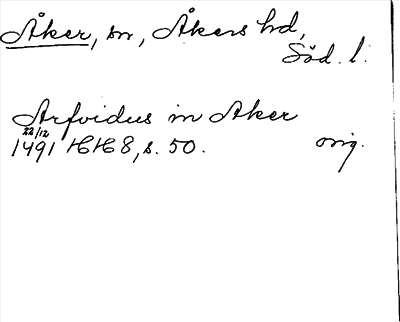 Åker, sn, Åkers hd,
Söd. l.
Arfvidus in Aker
22/12
1491 HH 8, s. 50. orig.